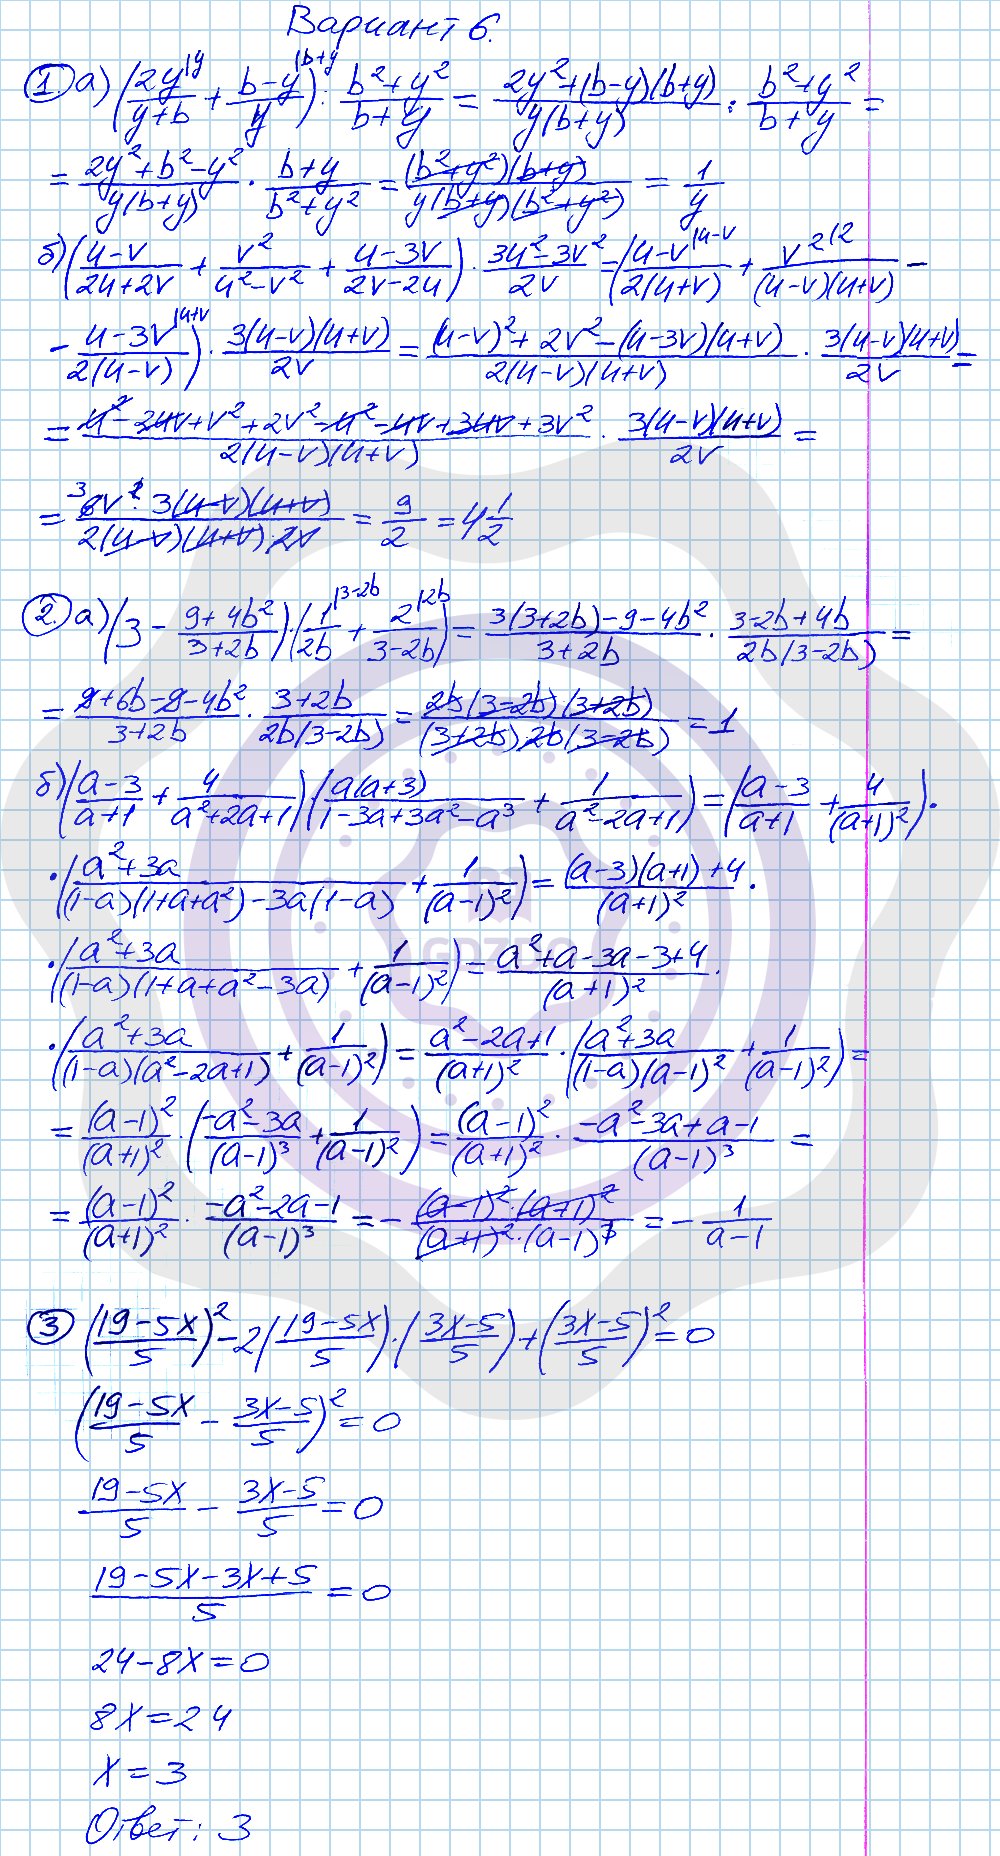 Вариант 6.
① а) (2y|y/(y+b) + (b-y)|b+y/y) : (b²+y²)/(b+y) = (2y²+(b-y)(b+y))/(y(b+y)) : (b²+y²)/(b+y) =
= (2y²+b²-y²)/(y(b+y)) · (b+y)/(b²+y²) = ((b²+y²)(b+y))/(y(b+y)(b²+y²)) = 1/y
б) ((u-v)/(2u+2v) + v²/(u²-v²) + (u-3v)/(2v-2u)) · (3u²-3v²)/(2v) = ((u-v)|u-v/(2(u+v)) + v²|2/((u-v)(u+v)) -
- (u-3v)|u+v/(2(u-v))) · (3(u-v)(u+v))/(2v) = ((u-v)²+2v²-(u-3v)(u+v))/(2(u-v)(u+v)) · (3(u-v)(u+v))/(2v) =
= (u²-2uv+v²+2v²-u²-uv+3uv+3v²)/(2(u-v)(u+v)) · (3(u-v)(u+v))/(2v) =
= 3 (6v²·3(u-v)(u+v))/(2(u-v)(u+v)·2v) = 9/2 = 4 1/2
②. а) (3 - (9+4b²)/(3+2b)) · (1|3-2b/(2b) + 2|2b/(3-2b)) = (3(3+2b)-9-4b²)/(3+2b) · (3-2b+4b)/(2b(3-2b)) =
= (9+6b-9-4b²)/(3+2b) · (3+2b)/(2b(3-2b)) = (2b(3-2b)(3+2b))/((3+2b)2b(3-2b)) = 1
б) ((a-3)/(a+1) + 4/(a²+2a+1)) · (a(a+3)/(1-3a+3a²-a³) + 1/(a²-2a+1)) = ((a-3)/(a+1) + 4/(a+1)²) ·
· ((a²+3a)/((1-a)(1+a+a²)-3a(1-a)) + 1/(a-1)²) = ((a-3)(a+1)+4)/(a+1)² ·
· ((a²+3a)/((1-a)(1+a+a²-3a)) + 1/(a-1)²) = (a²+a-3a-3+4)/(a+1)² ·
· ((a²+3a)/((1-a)(a²-2a+1)) + 1/(a-1)²) = (a²-2a+1)/(a+1)² · ((a²+3a)/((1-a)(a-1)²) + 1/(a-1)²) =
= (a-1)²/(a+1)² · ((-a²-3a)/(a-1)³ + 1/(a-1)²) = (a-1)²/(a+1)² · (-a²-3a+a-1)/(a-1)³ =
= (a-1)²/(a+1)² · (-a²-2a-1)/(a-1)³ = - ((a-1)²·(a+1)²)/((a+1)²·(a-1)³) = - 1/(a-1)
③ ((19-5x)/5)² - 2((19-5x)/5) · ((3x-5)/5) + ((3x-5)/5)² = 0
((19-5x)/5 - (3x-5)/5)² = 0
(19-5x)/5 - (3x-5)/5 = 0
(19-5x-3x+5)/5 = 0
24-8x=0
8x=24
x=3
Ответ: 3